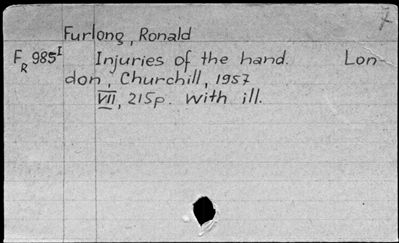 7
Furlong, Ronald
FR 985I Injuries of the hand. Lon
don, Churchill, 1957
VII, 215p. With ill.